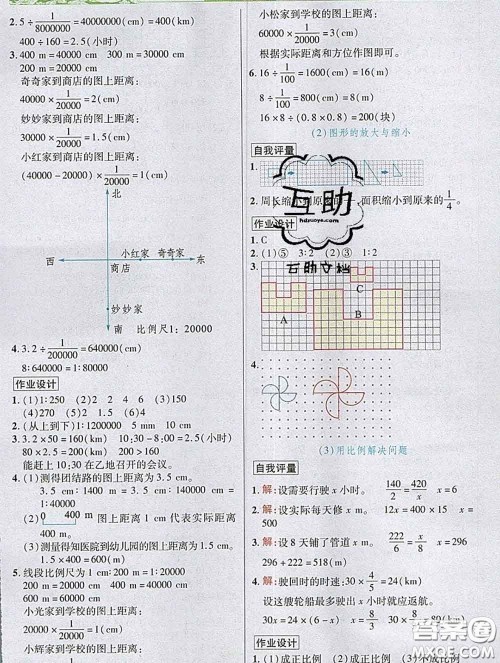 2. 5÷1/8000000=40000000(cm)=400(km)
400÷160=2.5(小时)
3. 400 m=40000 cm 300 m=30000 cm
200 m=20000 cm
奇奇家到商店的图上距离:
40000×1/20000=2(cm)
妙妙家到商店的图上距离:
30000×1/20000=1.5(cm)
小红家到商店的图上距离:
(40000-20000)×1/20000=1(cm)
北
小红家 奇奇家
西 商店 东
妙妙家
南 比例尺1:20000
4. 3.2÷1/200000=640000(cm)
8:640000=1:80000
作业设计
1. (1)1:250 (2)1 2 4 6 (3)150
(4)270 (5)2 1.2
2. (从上到下)1:1200000 5 mm 10 cm
3. 3.2×50=160(km) 10:30-8:30=2(小时)
80×2.5=200(km) 200>160
能赶上10:30在乙地召开的会议。
4. (1)测得团结路的图上距离为3.5 cm。
3.5:1400 m=3.5 cm:140000 cm=
1:40000
(2)0 400 m 图上距离1 cm代表实际距离
400 m。
(3)测量得知医院到幼儿园的图上距离为1.5 cm。
1.5×400=600(m)
5. 线段比例尺为1 cm:200 m=1:20000
100 m=10000 cm 400 m=40000 cm
200 m=20000 cm
小光家到学校的图上距离:
小辉家到学校的图上距离:
小松家到学校的图上距离:
20000×1/20000=1(cm)
根据实际距离和方位作图即可。
6. 16÷1/100=1600(cm)=16(m)
8÷1/100=800(cm)=8(m)
16×8÷(0.8×0.8)=200(块)
(2)图形的放大与缩小
自我评量
1.
2. 周长缩小到原来的 面积缩小到原来的1/4。
互助
hdzuoye.com
互助文档
作业设计
1. C
2. (1)⑤ 3:2 (2)③ 1:2
3.
A B C
4.
(3)用比例解决问题
自我评量
1. 解:设需要行驶x小时。 140/2=420/x x=6
2. 解:设实际每天修x m。
3. 解:设8天铺了管道x m。 222/6=x/8 x=296
296+222=518(m)
4. 解:驶回时的速度:30×4/5=24(km)
设这艘轮船最多驶出x小时就应返航。
作业设计
1. (1)成正比例 (2)成正比例
答案圈
MXQE.COM